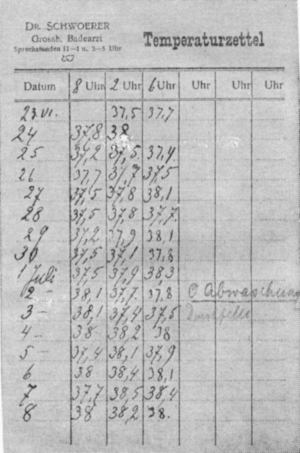 DR. SCHWOERER
Grossh. Badearzt
Sprechstunden 11–1 u. 3–5 Uhr
Temperaturzettel
Datum 8 Uhr 2 Uhr 6 Uhr Uhr Uhr Uhr
23.VI. 37,5 37,7
24 37,8 38
25 37,2 37,5 37,4
26 37,7 37,7 37,5
27 37,5 37,8 38,1
28 37,5 37,8 37,7
29 37,2 37,9 38,1
30 37,5 37,1 37,8
1 Juli 37,5 37,9 38,3
2 – 38,1 37,7 37,8 Abwaschung
3 – 38,1 37,4 37,5
4 – 38 38,2 38
5 – 37,4 38,1 37,9
6 38 38,4 38,1
7 37,7 38,5 38,4
8 38 38,2 38.